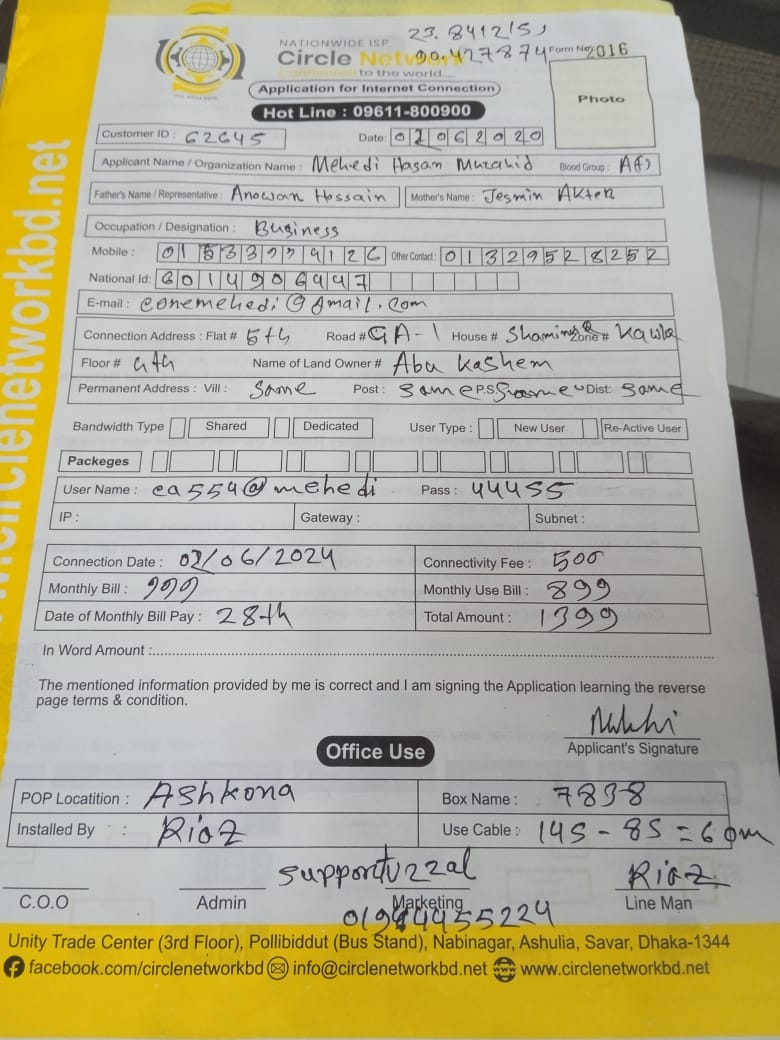 23.841215,
90.427874
NATIONWIDE ISP
Circle Network
Connecting to the world....
Form No: 2016
Application for Internet Connection
Hot Line : 09611-800900
Photo
Customer ID : 62645
Date: 02062020
Applicant Name / Organization Name : Mehedi Hasan Muzahid Blood Group : A(+)
Father's Name / Representative : Anowar Hossain Mother's Name : Jesmin Akter
Occupation / Designation : Business
Mobile : Other Contact : 01329528252
National Id: 6014906447
E-mail : eonemehedi@gmail.com
Connection Address : Flat # 5th Road # GA-1 House # Zone # Kawla
Floor # 4th Name of Land Owner # Abu Kashem
Permanent Address : Vill : Same Post : Same P.S: Same Dist: Same
Bandwidth Type Shared Dedicated User Type : New User Re-Active User
Packeges
User Name : ea554@mehedi Pass : 44455
IP : Gateway : Subnet :
Connection Date : 02/06/2024 Connectivity Fee : 500
Monthly Bill : 999 Monthly Use Bill : 899
Date of Monthly Bill Pay : 28th Total Amount : 1399
In Word Amount :
The mentioned information provided by me is correct and I am signing the Application learning the reverse
page terms & condition.
Applicant's Signature
Office Use
POP Locatition : Ashkona Box Name : 7838
Installed By : Riaz Use Cable : 145 - 85 = 60m
support Uzzal Riaz
C.O.O Admin Marketing Line Man
Unity Trade Center (3rd Floor), Pollibiddut (Bus Stand), Nabinagar, Ashulia, Savar, Dhaka-1344
facebook.com/circlenetworkbd info@circlenetworkbd.net www.circlenetworkbd.net